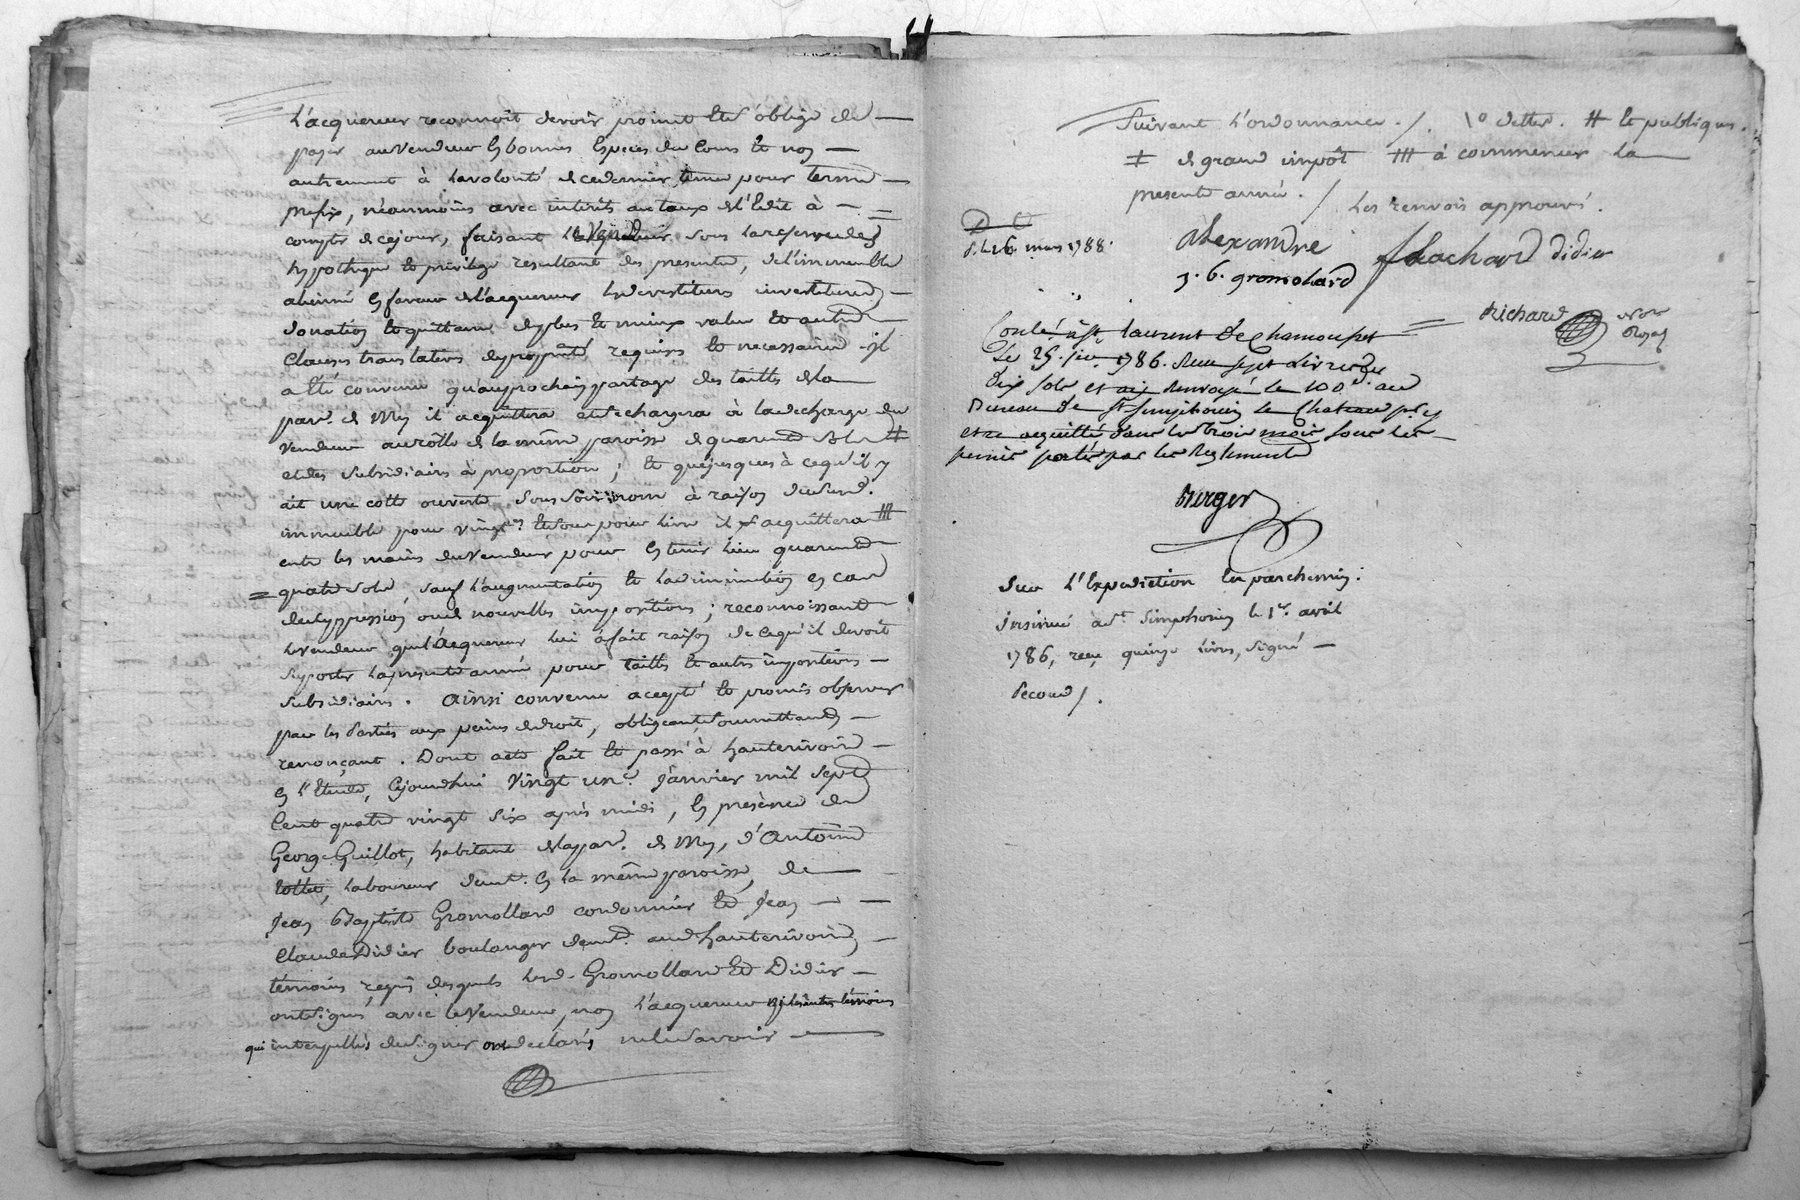 L'acquereur reconnoit devoir promet et s'oblige de
payer au vendeur en bonnes especes du cours et non
autrement à la volonté de ce dernier, tenue pour terme
prefix, néanmoins avec interets au taux de l'Edit à
compter de ce jour, faisant le vendeur sous la reserve des
hypotheque et privilege resultant des presentes, de l'immeuble
aliéné en faveur de l'acquereur les devestitures investitures
donation et quittance de plus et mieux value et autres
clauses translatives de proprieté requises et necessaires. il
a été convenu qu'au prochain partage des tailles de la
par. de Mey il acquittera et dechargera à la decharge du
vendeur au rôlle de la même paroisse de quarante sols #
et des subsidiaires à proportion ; et que jusques à ce qu'il y
ait une cotte ouverte sous son nom à raison dud fond.
immeuble pour vingt. et sou pour livre il s'acquittera
entre les mains du vendeur pour en tenir lieu quarante
= quatre sols, sauf l'augmentation et la diminution en cas
de suppression ou de nouvelles impositions ; reconnoissant
le vendeur que l'acquereur lui a fait raison de ce qu'il devoit
suporter la presente année pour tailles et autres impositions
subsidiaires. Ainsi convenu accepté et promis observer
par les Parties aux peines de droit, obligeant, soumettant,
renonçant. Dont acte fait et passé à hauterivoire
en l'Etude, cejourdhui vingt un. janvier mil sept
cent quatre vingt six après midi, en présence de
George Guillot, habitant de la par. de Mey, d'Antoine
laboureur demt. en la même paroisse, de
Jean Baptiste Gromollard cordonnier et Jean
Claude Didier boulanger demt. aud hauterivoire
témoins requis desquels led. Gromollard et Didier
ont signé avec le vendeur, non l'acquereur ni les autres témoins
qui interpellés de signer ont declaré ne le savoir
Suivant l'ordonnance ./. 10 dettes. # et publiques.
‡ de grand impôt # à commencer la
presente année. / les renvois approuvés.
d. le 26. mars 1788.
Alexandre fleachard Didier
J. B. gromolard
Richard Nore Royal
Conlé à St. laurent de Chamousset
Le 25. jer. 1786. Recu sept livres
dix sols et ai renvoyé le 100d. au
Bureau de St. Simphorien le Chateau pr. y
etre acquitté dans les trois mois sous les
peines portées par les Reglements
Burger
Sur l'Expedition en parchemin:
Insinué à St. Simphorien le 1er. avril
1786, recu quinze livres, signé
Second /.